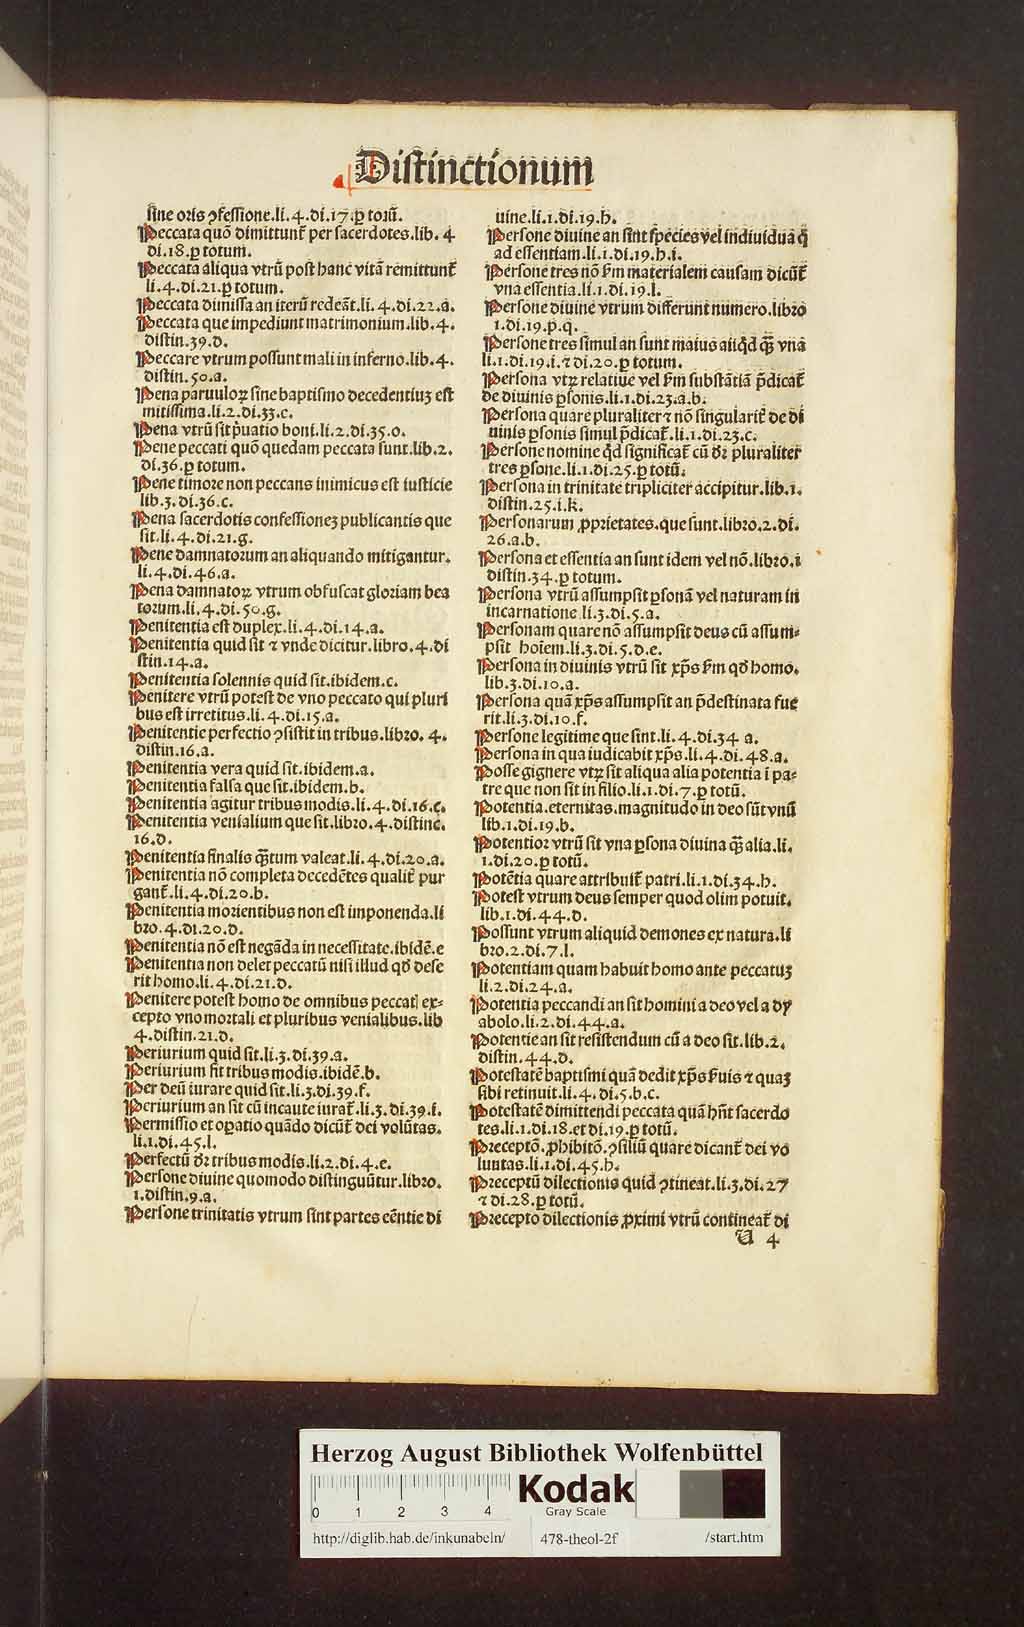 Distinctionum
sine oris ꝯfessione.li.4.di.17.ꝑ totũ.
Peccata quõ dimittunt᷑ per sacerdotes.lib. 4
di.18.ꝑ totum.
Peccata aliqua vtrũ post hanc vitã remittunt᷑
li.4.di.21.ꝑ totum.
Peccata dimissa an iterũ redeãt.li.4.di.22.a.
Peccata que impediunt matrimonium.lib.4.
distin.39.d.
Peccare vtrum possunt mali in inferno.lib.4.
distin.50.a.
Pena paruuloꝝ sine baptismo decedentiuꝫ est
mitissima.li.2.di.33.c.
Pena vtrũ sit p̃uatio boni.li.2.di.35.o.
Pene peccati quõ quedam peccata sunt.lib.2.
di.36.ꝑ totum.
Pene timore non peccans inimicus est iusticie
lib.3.di.36.c.
Pena sacerdotis confessioneꝫ publicantis que
sit.li.4.di.21.g.
Pene damnatorum an aliquando mitigantur.
li.4.di.46.a.
Pena damnatoꝝ vtrum obfuscat gloriam bea
torum.li.4.di.50.g.
Penitentia est duplex.li.4.di.14.a.
Penitentia quid sit ⁊ vnde dicitur.libro.4.di
stin.14.a.
Penitentia solennis quid sit.ibidem.c.
Penitere vtrũ potest de vno peccato qui pluri
bus est irretitus.li.4.di.15.a.
Penitentie perfectio ꝯsistit in tribus.libro. 4.
distin.16.a.
Penitentia vera quid sit.ibidem.a.
Penitentia falsa que sit.ibidem.b.
Penitentia agitur tribus modis.li.4.di.16.c.
Penitentia venialium que sit.libro.4.distinc.
16.d.
Penitentia finalis qᷓ̃tum valeat.li.4.di.20.a.
Penitentia nõ completa decedẽtes qualit᷑ pur
gant᷑.li.4.di.20.b.
Penitentia morientibus non est imponenda.li
bro.4.di.20.d.
Penitentia nõ est negãda in necessitate.ibidẽ.e
Penitentia non delet peccatũ nisi illud qđ dese
rit homo.li.4.di.21.d.
Penitere potest homo de omnibus peccatꝭ ex-
cepto vno mortali et pluribus venialibus.lib
4.distin.21.d.
Periurium quid sit.li.3.di.39.a.
Periurium fit tribus modis.ibidẽ.b.
Per deũ iurare quid sit.li.3.di.39.f.
Periurium an sit cũ incaute iurat᷑.li.3.di.39.i.
Permissio et oꝑatio quãdo dicũt᷑ dei volũtas.
li.1.di.45.l.
Perfectũ dr̃ tribus modis.li.2.di.4.e.
Persone diuine quomodo distinguũtur.libro.
1.distin.9.a.
Persone trinitatis vtrum sint partes cẽntie di
uine.li.1.di.19.h.
Persone diuine an sint species vel indiuidua q̃
ad essentiam.li.1.di.19.h.i.
Persone tres nõ f̃m materialem causam dicũt᷑
vna essentia.li.1.di.19.l.
Persone diuine vtrum differunt numero.libro
1.di.19.p.q.
Persone tres simul an sunt maius aliqͥd qᷓ̃ vna
li.1.di.19.i.⁊ di.20.ꝑ totum.
Persona vtꝝ relatiue vel f̃m substãtiã p̃dicat᷑
de diuinis ꝑsonis.li.1.di.23.a.b.
Persona quare pluraliter ⁊ nõ singularit᷑ de di
uinis ꝑsonis simul p̃dicat᷑.li.1.di.23.c.
Persone nomine qͥd significat᷑ cũ dr̃ pluraliter
tres ꝑsone.li.1.di.25.ꝑ totũ.
Persona in trinitate tripliciter accipitur.lib.1.
distin.25.i.k.
Personarum ꝓprietates.que sunt.libro.2.di.
26.a.b.
Persona et essentia an sunt idem vel nõ.libro.i
distin.34.ꝑ totum.
Persona vtrũ assumpsit ꝑsonã vel naturam in
incarnatione li.3.di.5.a.
Personam quare nõ assumpsit deus cũ assum-
psit hoiem.li.3.di.5.d.e.
Persona in diuinis vtrũ sit xp̃s f̃m qđ homo.
lib.3.di.10.a.
Persona quã xp̃s assumpsit an p̃destinata fue
rit.li.3.di.10.f.
Persone legitime que sint.li.4.di.34 a.
Persona in qua iudicabit xp̃s.li.4.di.48.a.
Posse gignere vtꝝ sit aliqua alia potentia ĩ pa-
tre que non sit in filio.li.1.di.7.ꝑ totũ.
Potentia.eternitas.magnitudo in deo sũt vnũ
lib.1.di.19.b.
Potentior vtrũ sit vna ꝑsona diuina qᷓ̃ alia.li.
1.di.20.ꝑ totũ.
Potẽtia quare attribuit᷑ patri.li.1.di.34.h.
Potest vtrum deus semper quod olim potuit.
lib.1.di.44.d.
Possunt vtrum aliquid demones ex natura.li
bro.2.di.7.l.
Potentiam quam habuit homo ante peccatuꝫ
li.2.di.24.a.
Potentia peccandi an sit homini a deo vel a dy
abolo.li.2.di.44.a.
Potentie an sit resistendum cũ a deo sit.lib.2.
distin.44.d.
Potestatẽ baptismi quã dedit xp̃s s̃uis ⁊ quaꝫ
sibi retinuit.li.4.di.5.b.c.
Potestatẽ dimittendi peccata quã hñt sacerdo
tes.li.1.di.18.et di.19.ꝑ totũ.
Preceptõ.ꝓhibitõ.ꝯsiliũ quare dicant᷑ dei vo
luntas.li.1.di.45.h.
Preceptũ dilectionis quid ꝯtineat.li.3.di.27
⁊ di.28.ꝑ totũ.
Precepto dilectionis ꝓximi vtrũ contineat᷑ di
U 4
Herzog August Bibliothek Wolfenbüttel
0 1 2 3 4
Kodak
Gray Scale
http://diglib.hab.de/inkunabeln/ 478-theol-2f /start.htm